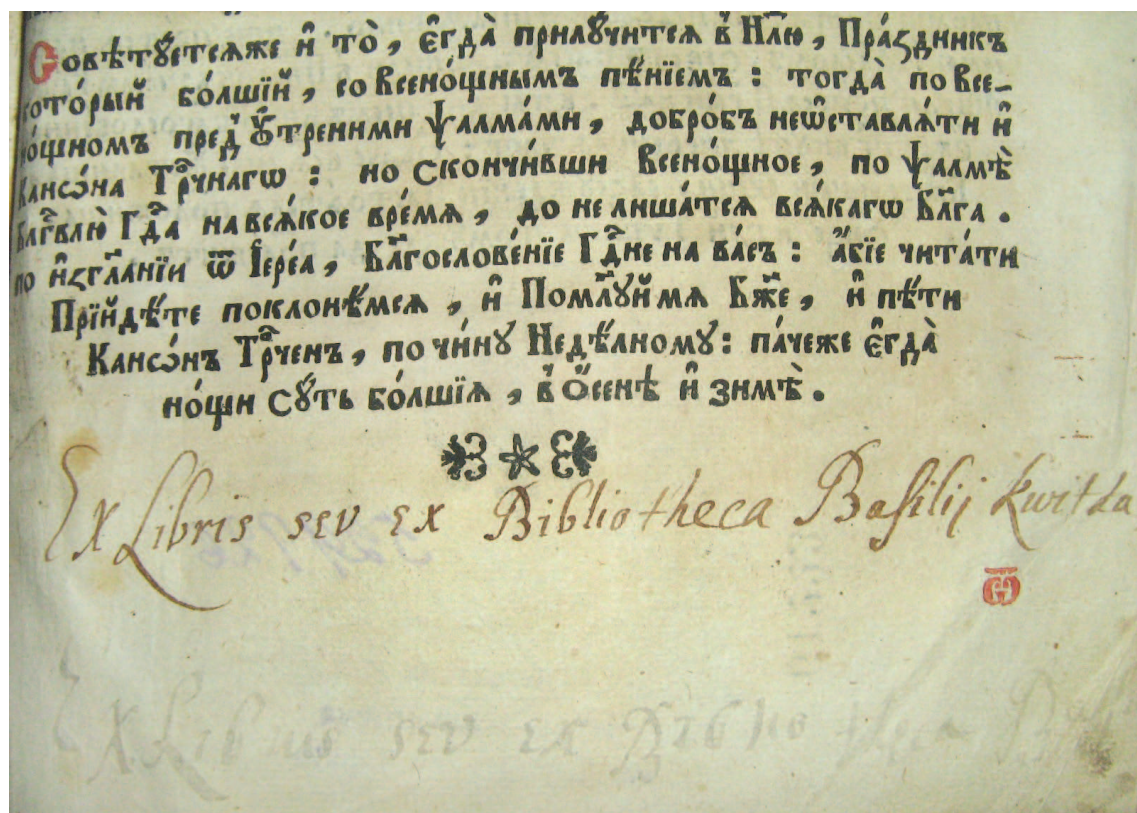 Совѣтꙋетсѧже и҆ то̀, є҆гда̀ прилꙋ́читсѧ в̾ Нл҃ю, Пра́здникъ
кото́рый бо́лшїй, со Всено́щнымъ пѣ́нїемъ : тогда̀ по Все-
но́щномъ пред̾ Оу҆́тренними ѱалма́ми, добро́бъ неѡ҆ставлѧ́ти и҆
Канѡ́на Трⷪ҇чнагѡ : но Скончи́вши Всено́щное, по ѱалмѣ̀
Блгⷭ҇влю̀ Гдⷭ҇а на всѧ́кое вре́мѧ, до не лиша́тсѧ всѧ́кагѡ Бл҃га.
по и҆зглⷶ҇нїи ѿ І҆ере́а, Блⷢ҇ословє́нїе Гдⷭ҇не на ва́съ : а҆́бїе чита́ти
Прїйдѣ́те поклонѣ́мсѧ, и҆ Помл҃ꙋй мѧ Бж҃е, и҆ пѣ́ти
Канѡ́нъ Трⷪ҇ченъ, по чи́нꙋ Недѣ́лномꙋ : па́чеже є҆гда̀
но́щи Сꙋ́ть бо́лшїѧ, в̾ О҆́сенѣ и҆ зимѣ̀.
Ex Libris seu ex Bibliotheca Basilij Kwitka
Ex Libris seu ex Biblio